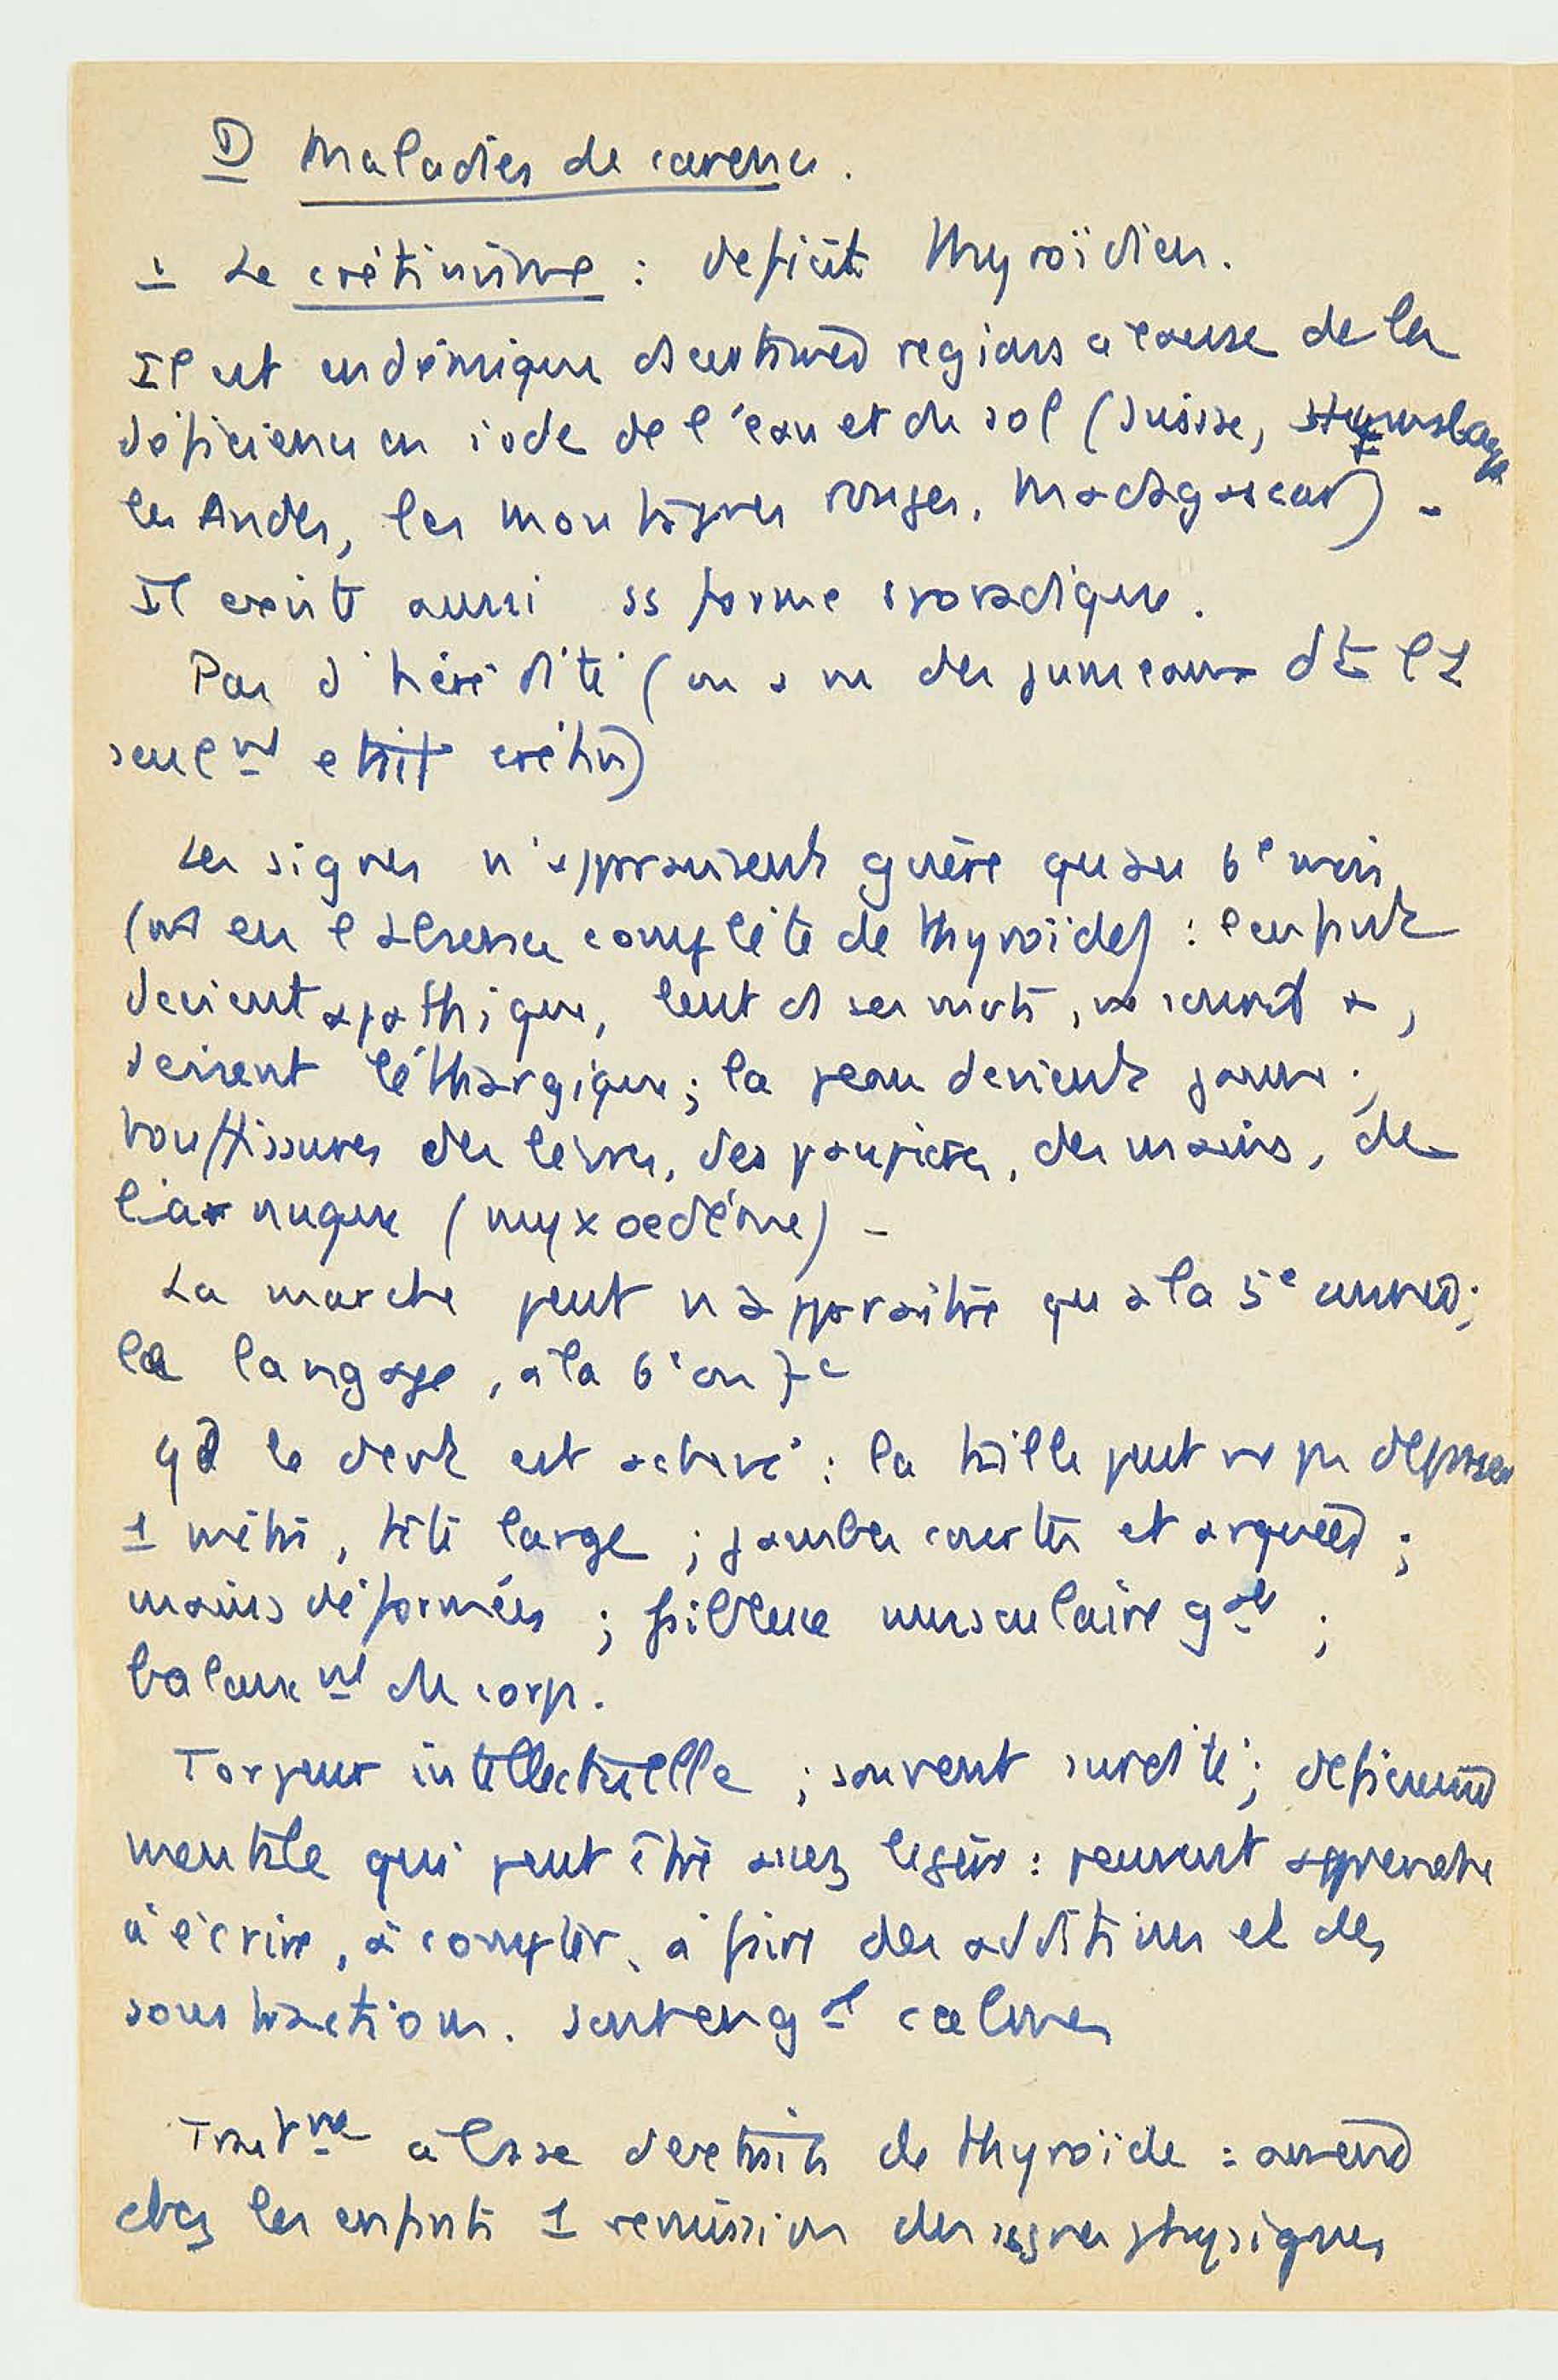 D Maladies de carence.
1 Le crétinisme : deficit thyroïdien.
Il est endémique ds certaines regions a cause de la
déficience en iode de l'eau et du sol (Suisse,
les Andes, les montagnes rouges, Madagascar) -
Il existe aussi ss forme sporadique.
Pas d'hérédité (on a vu des jumeaux dt l'1
seulmt etait crétin)
Les signes n'apparaissent guère qu'au 6e mois
(mt en l'absence complète de thyroïde) : l'enfant
devient apathique, lent ds ses mvts, ne sourit +,
devient léthargique ; la peau devient jaune ;
bouffissures des lèvres, des paupières, des mains, de
la nuque (myxoedème) -
La marche peut n'apparaître qu'à la 5e année ;
le langage, à la 6e ou 7e
qd le devt est achevé : la taille peut ne pas dépasser
1 mètre, tête large ; jambes courtes et arquées ;
mains déformées ; faiblesse musculaire gale ;
balancmt du corps.
Torpeur intellectuelle ; souvent surdité ; déficience
mentale qui peut être assez légère : peuvent apprendre
à écrire, à compter, à faire des additions et des
soustractions. sont en gal calmes
Traitmt à base d'extraits de thyroïde : amène
chez les enfants 1 rémission des signes physiques